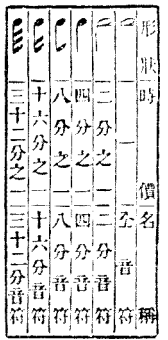 形狀 時價 名稱
一 全音符
二分之一 二分音符
四分之一 四分音符
八分之一 八分音符
十六分之一 十六分音符
三十二分之一 三十二分音符